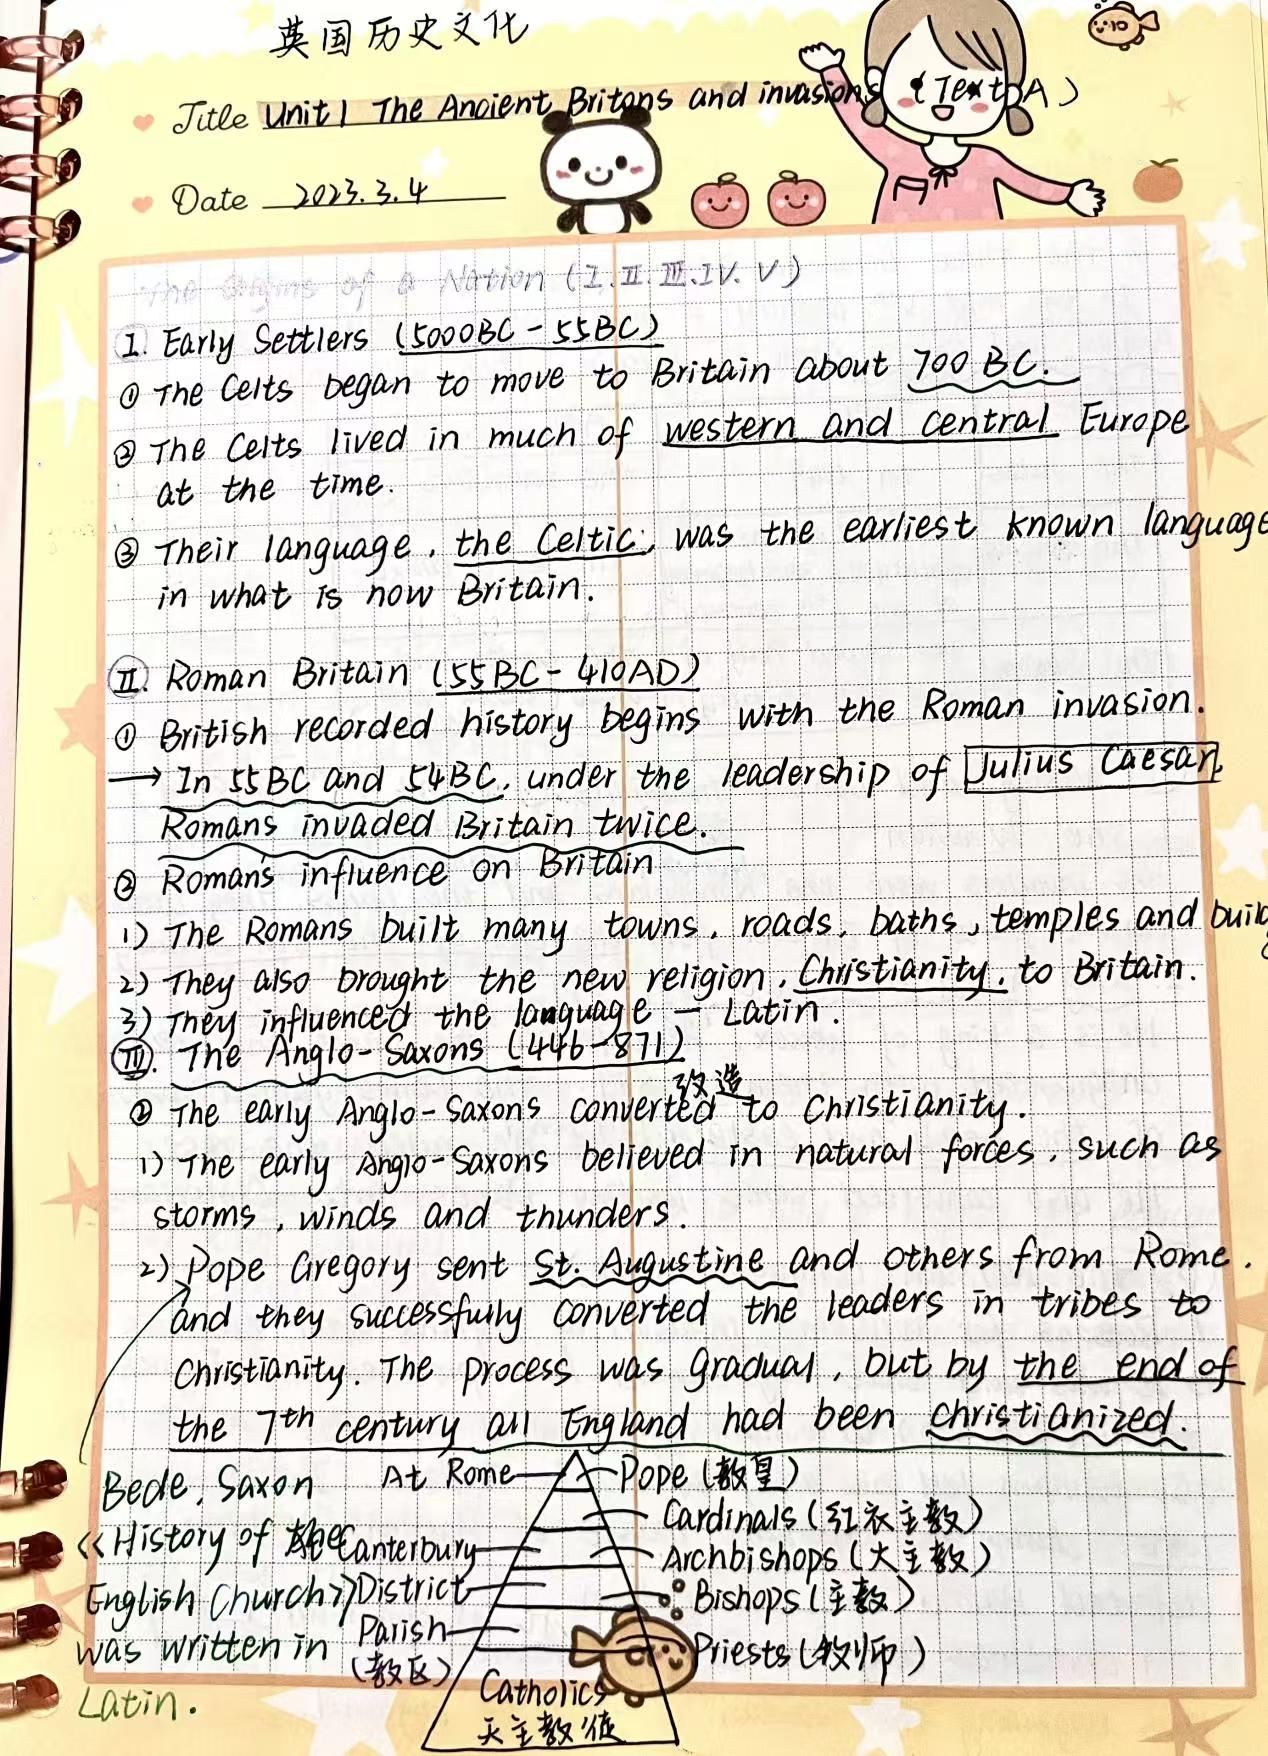 英国历史文化
Title Unit 1 The Ancient Britons and invasions (Text A)
Date 2023.3.4
The Origins of a Nation (I.II.III.IV.V)
I. Early Settlers (5000BC-55BC)
① The Celts began to move to Britain about 700 BC.
② The Celts lived in much of western and central Europe
at the time.
③ Their language, the Celtic, was the earliest known language
in what is now Britain.
II. Roman Britain (55BC-410AD)
① British recorded history begins with the Roman invasion.
→ In 55BC and 54BC, under the leadership of Julius Caesar,
Romans invaded Britain twice.
② Roman's influence on Britain
1) The Romans built many towns, roads, baths, temples and build
2) They also brought the new religion, Christianity, to Britain.
3) They influenced the language — Latin.
III. The Anglo-Saxons (446-871)
改造
② The early Anglo-Saxons converted to Christianity.
1) The early Anglo-Saxons believed in natural forces, such as
storms, winds and thunders.
2) Pope Gregory sent St. Augustine and others from Rome.
and they successfully converted the leaders in tribes to
Christianity. The process was gradual, but by the end of
the 7th century all England had been christianized.
Bede, Saxon
《History of the
English Church》
was written in
Latin.
At Rome
Pope (教皇)
Cardinals (红衣主教)
At Canterbury
Archbishops (大主教)
District
Bishops (主教)
Parish
(教区)
Priests (牧师)
Catholics
天主教徒